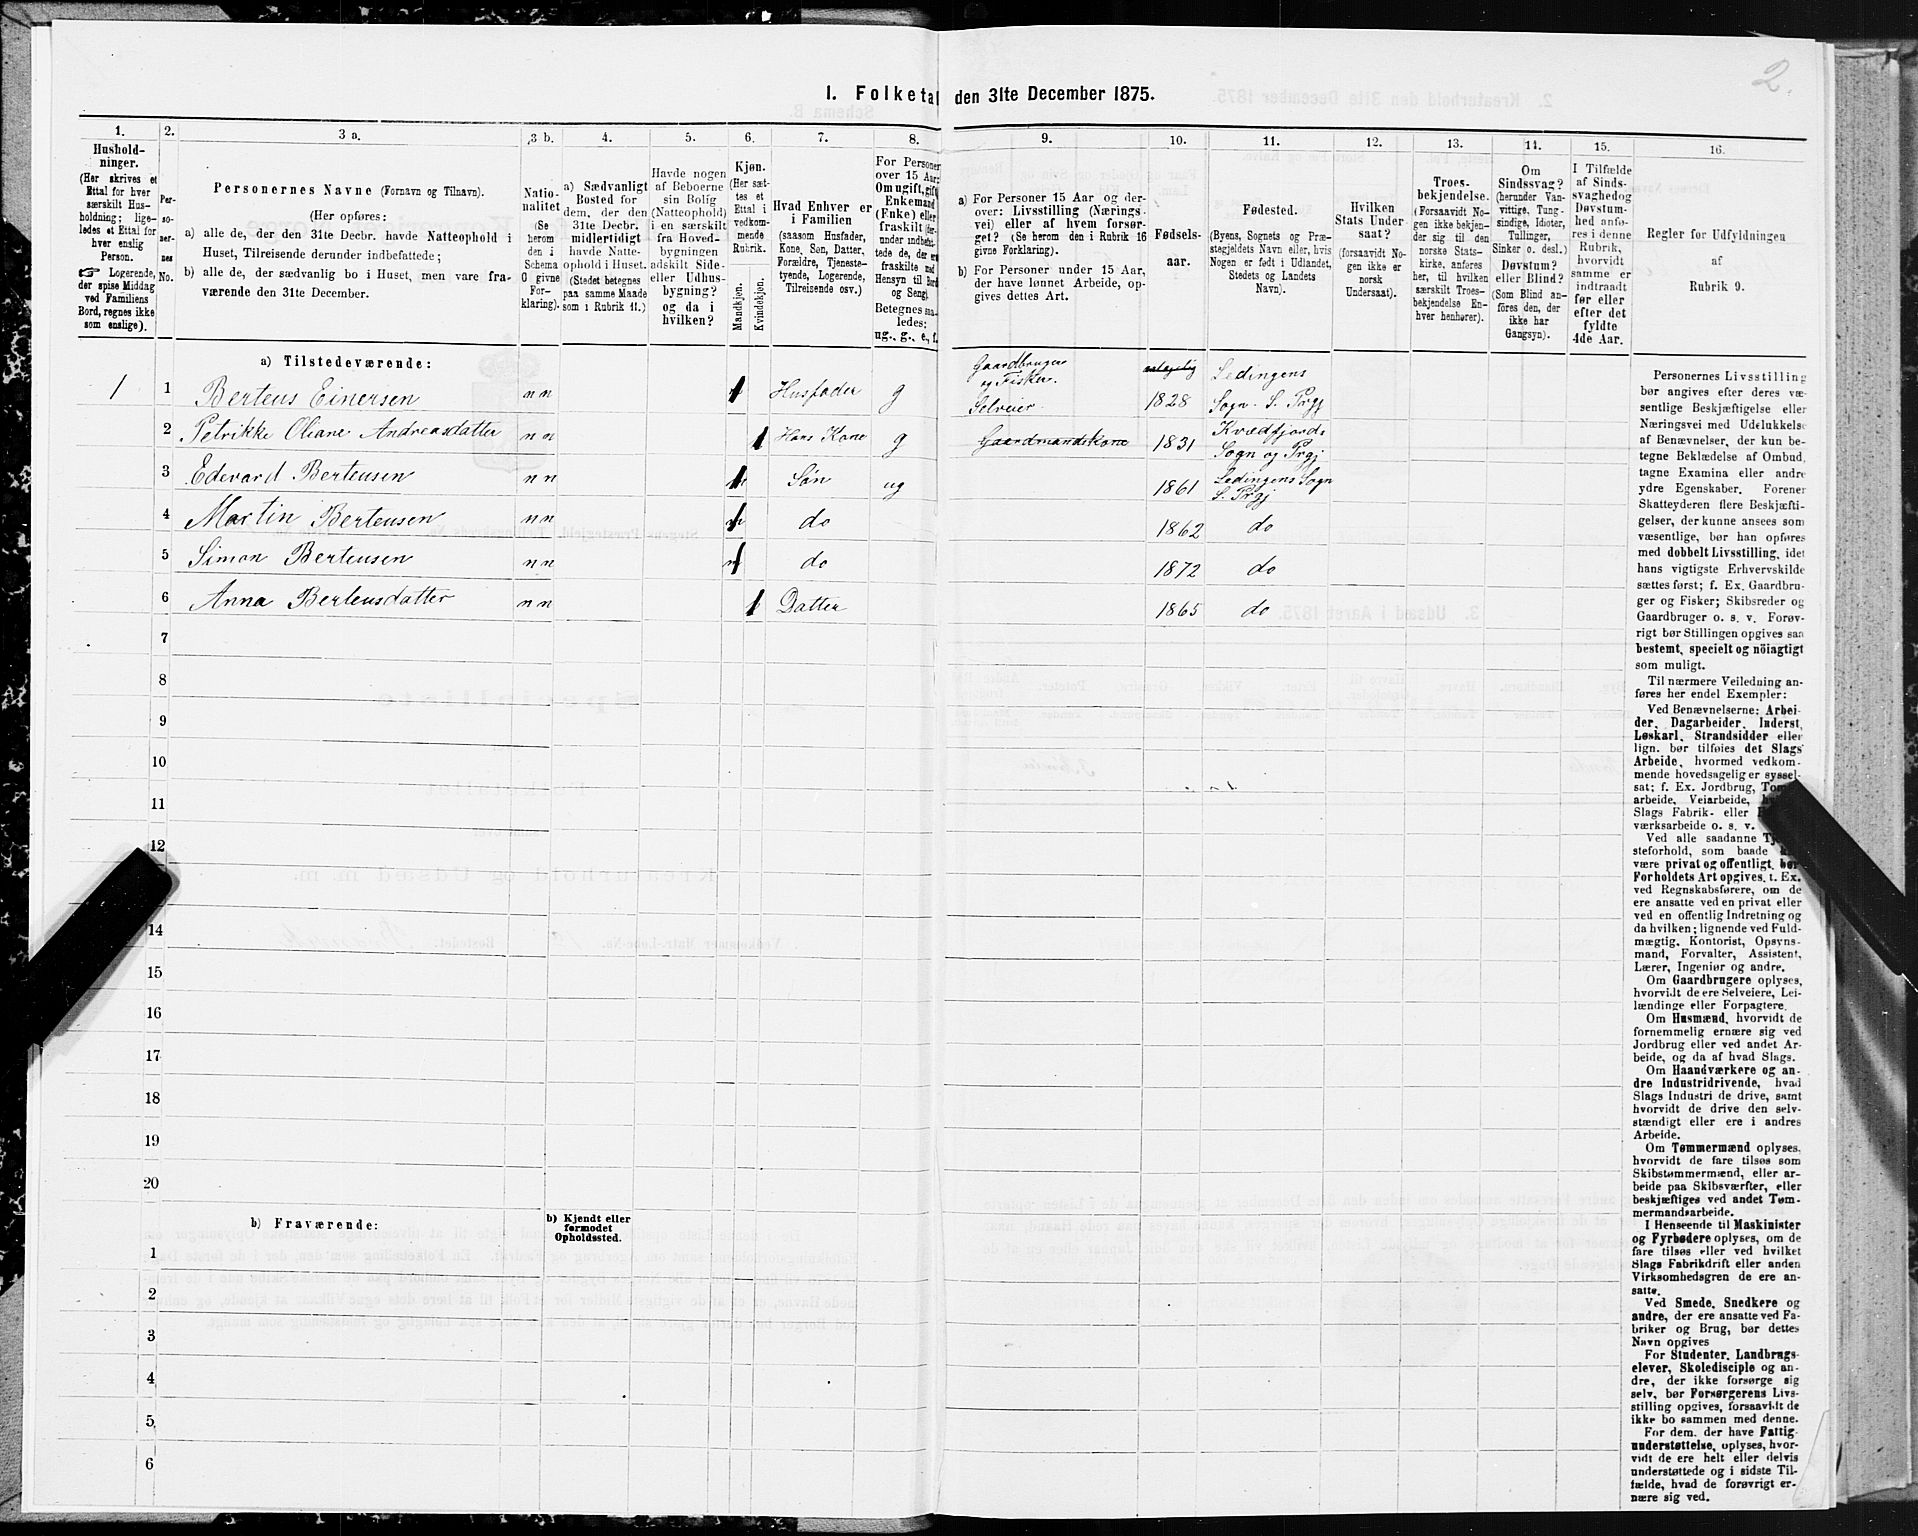 2.
I. Folketal den 31te December 1875.
1. 2. 3 a. 3 b. 4. 5. 6. 7. 8. 9. 10. 11. 12. 13. 14. 15. 16.
Hushold-
ninger.
(Her skrives et
Ettal for hver
særskilt Hus-
holdning; lige-
ledes et Ettal for
hver enslig
Person.
☞ Logerende,
der spise Middag
ved Familiens
Bord, regnes ikke
som enslige).
Per-
so-
ner-
nes
No.
Personernes Navne (Fornavn og Tilnavn).
(Her opføres:
a) alle de, der den 31te Decbr. havde Natteophold i
Huset, Tilreisende derunder indbefattede;
b) alle de, der sædvanlig bo i Huset, men vare fra-
værende den 31te December.
Natio-
nalitet
(Se
herom
den i
Schema
O givne
For-
klaring).
a) Sædvanligt
Bosted for
dem, der den
31te Decbr.
midlertidigt
havde Natte-
ophold i Huset.
(Stedet betegnes
paa samme Maade
som i Rubrik 11.)
Havde nogen
af Beboerne
sin Bolig
(Natteophold)
i en særskilt
fra Hoved-
bygningen
adskilt Side-
eller Udhus-
bygning?
og da i
hvilken?
Kjøn.
(Her sæt-
tes et
Ettal i
vedkom-
mende
Rubrik.
Mandkjøn.
Kvindekjøn.
Hvad Enhver er
i Familien
(saasom Husfader,
Kone, Søn, Datter,
Forældre, Tjeneste-
tyende, Logerende,
Tilreisende osv.)
For Personer
over 15 Aar:
Om ugift, gift,
Enkemand
(Enke) eller
fraskilt (der-
under indbefat-
tede de, der ere
fraskilte med
Hensyn til Bord
og Seng).
Betegnes saa-
ledes:
ug., g., e., f.
a) For Personer 15 Aar og der-
over: Livsstilling (Nærings-
vei) eller af hvem forsør-
get? (Se herom den i Rubrik 16
givne Forklaring).
b) For Personer under 15 Aar,
der have lønnet Arbeide, op-
gives dettes Art.
Fødsels-
aar.
Fødested.
(Byens, Sognets og Præ-
stegjeldets Navn eller, hvis
Nogen er født i Udlandet,
Stedets og Landets
Navn).
Hvilken
Stats Under-
saat?
(forsaavidt No-
gen ikke er
norsk
Undersaat).
Troes-
bekjendelse.
(Forsaavidt No-
gen ikke bekjen-
der sig til den
norske Stats-
kirke, anføres
her, til hvilken
særskilt Troes-
bekjendelse En-
hver henhører).
Om
Sindssvag?
(herunder Van-
vittige, Tung-
sindige, Idioter,
Tullinger,
Sinker o. desl.)
Døvstum?
eller Blind?
(Som Blind an-
føres den, der
ikke har
Gangsyn).
I Tilfælde
af Sinds-
svaghed og
Døvstum-
hed anfø-
res i denne
Rubrik,
hvorvidt
samme er
indtraadt
før eller
efter det
fyldte
4de Aar.
Regler for Udfyldningen
af
Rubrik 9.
a) Tilstedeværende:
1 1 Berteus Einersen n n 1 Husfader g Gaardbruger og Fisker. Selveier 1828 Ledingens Sogn. S. Prgj
2 Petrikke Oliane Andreasdatter n n 1 Hans Kone g Gaardmandskone 1831 Kvædfjords Sogn og Prgj
3 Edevard Berteusen n n 1 Søn ug 1861 Ledingens Sogn S. Prgj
4 Martin Berteusen n n 1 do 1862 do
5 Simon Berteusen n n 1 do 1872 do
6 Anna Berteusdatter n n 1 Datter 1865 do
7
8
9
10
11
12
14
15
16
17
18
19
20
b) Fraværende:
b) Kjendt eller
formodet
Opholdssted.
1
2
3
4
5
6
Personernes Livsstilling
bør angives efter deres væ-
sentlige Beskjæftigelse eller
Næringsvei med Udelukkelse
af Benævnelser, der kun be-
tegne Beklædelse af Ombud,
tagne Examina eller andre
ydre Egenskaber. Forener
Skatteyderen flere Beskjæfti-
gelser, der kunne ansees som
væsentlige, bør han opføres
med dobbelt Livsstilling, idet
hans vigtigste Erhvervskilde
sættes først; f. Ex. Gaardbru-
ger og Fisker; Skibsreder og
Gaardbruger o. s. v. Forøv-
rigt bør Stillingen opgives saa
bestemt, specielt og nöiagtigt
som muligt.
Til nærmere Veiledning an-
føres her endel Exempler:
Ved Benævnelserne: Arbei-
der, Dagarbeider, Inderst,
Løskarl, Strandsidder eller
lign. bør tilføies det Slags
Arbeide, hvormed vedkom-
mende hovedsagelig er syssel-
sat; f. Ex. Jordbrug,
arbeide, Veiarbeide,
Slags Fabrik- eller
værksarbeide o. s. v.
Ved alle saadanne
steforhold, som baade
være privat og offentligt, bør
Forholdets Art opgives, f. Ex.
ved Regnskabsførere, om de
ere ansatte ved en privat eller
ved en offentlig Indretning og
da hvilken; lignende ved Fuld-
mægtig, Kontorist, Opsyns-
mand, Forvalter, Assistent,
Lærer, Ingeniør og andre.
Om Gaardbrugere oplyses,
hvorvidt de ere Selveiere, Lei-
lændinge eller Forpagtere.
Om Husmænd, hvorvidt de
fornemmelig ernære sig ved
Jordbrug eller ved andet Ar-
beide, og da af hvad Slags.
Om Haandværkere og an-
dre Industridrivende, hvad
Slags Industri de drive, samt
hvorvidt de drive den selv-
stændigt eller ere i andres
Arbeide.
Om Tømmermænd oplyses,
hvorvidt de fare tilsøs som
Skibstømmermænd, eller ar-
beide paa Skibsværfter, eller
beskjæftiges ved andet Tøm-
mermandsarbeide.
I Henseende til Maskinister
og Fyrbødere oplyses, om de
fare tilsøs eller ved hvilket
Slags Fabrikdrift eller anden
Virksomhedsgren de ere an-
satte.
Ved Smede, Snedkere og
andre, der ere ansatte ved Fa-
briker og Brug, bør dettes
Navn opgives
For Studenter, Landbrugs-
elever, Skoledisciple og an-
dre, der ikke forsørge sig
selv, bør Forsørgerens Livs-
stilling opgives, forsaavidt de
ikke bo sammen med denne.
For dem, der have Fattig-
understøttelse, oplyses, hvor-
vidt de ere helt eller delvis
understøttede og i sidste Til-
fælde, hvad de forøvrigt er-
nære sig ved.